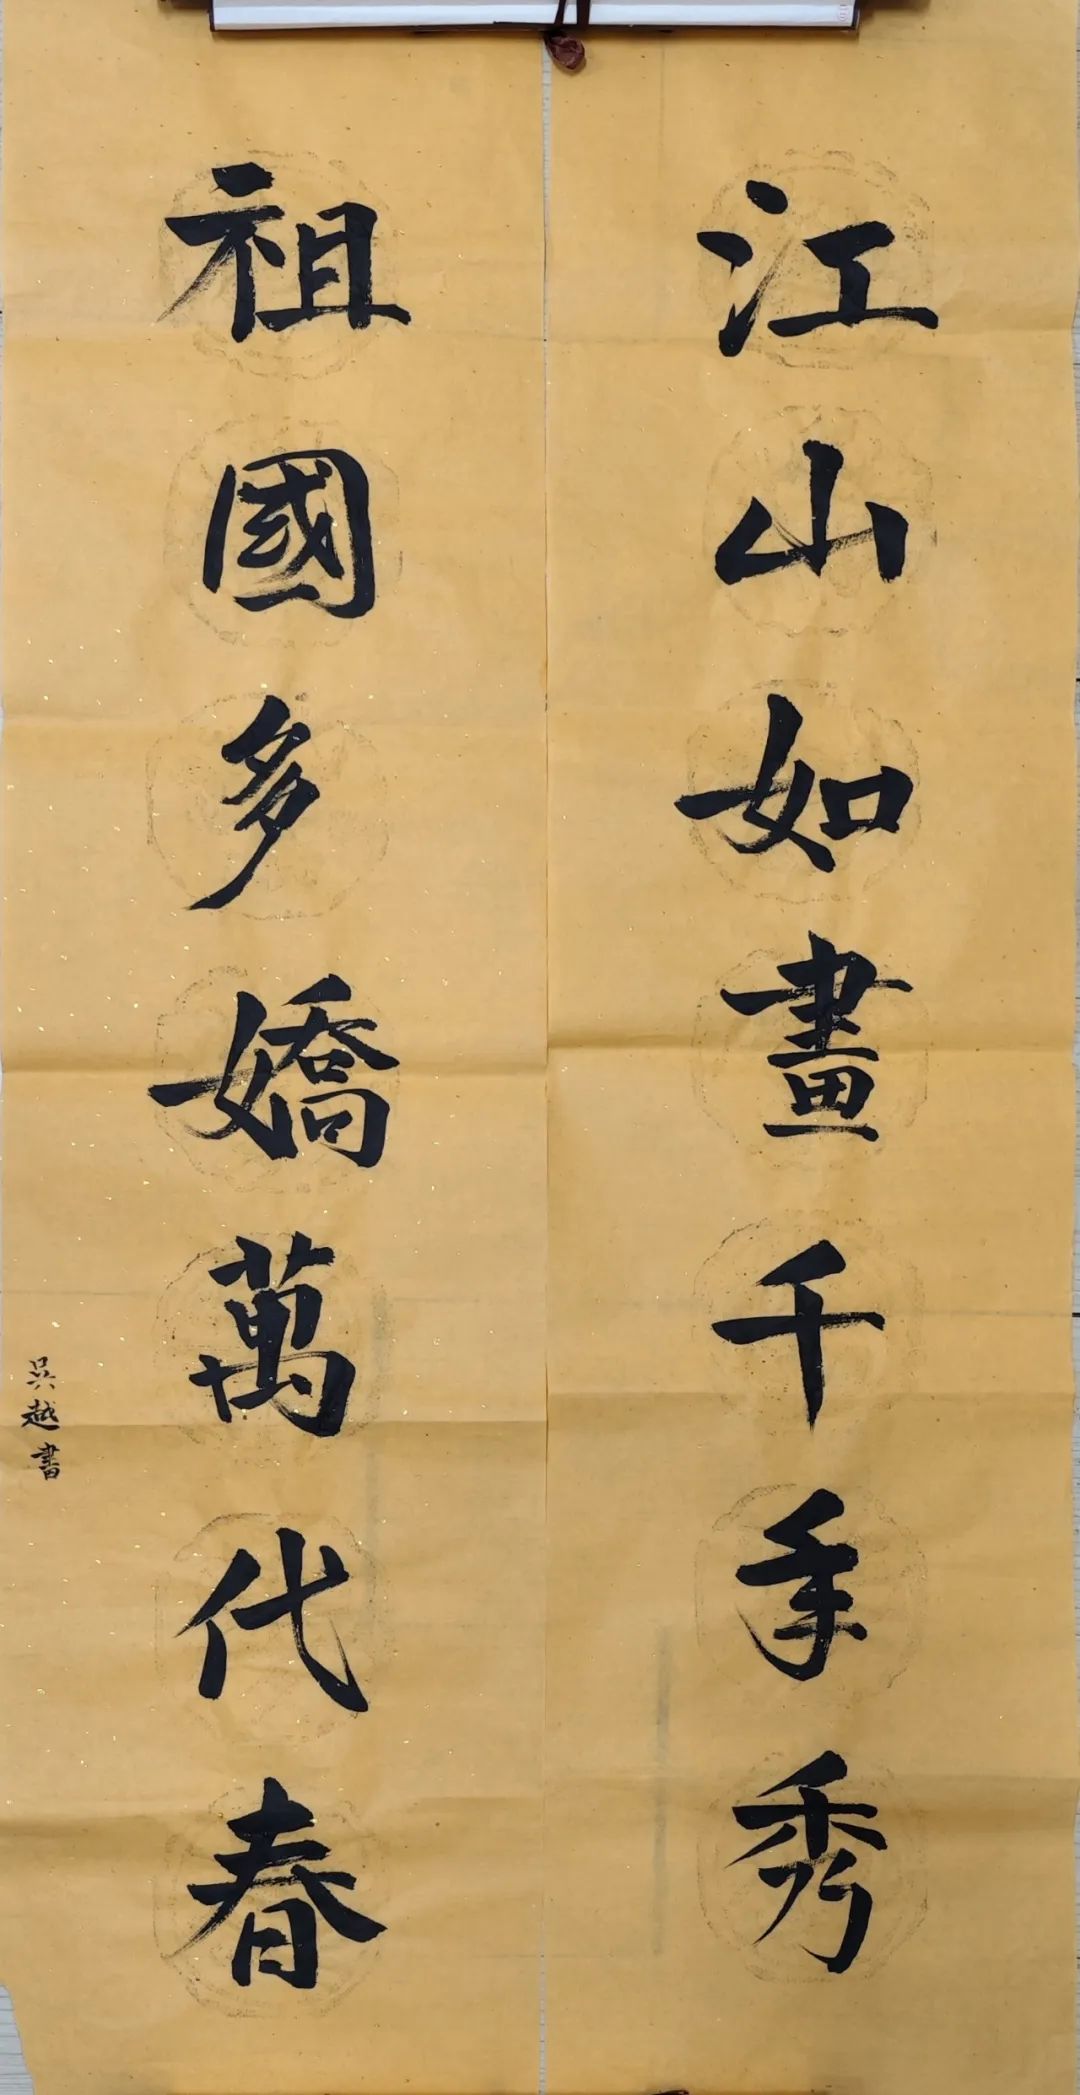 江山如畫千年秀
祖國多嬌萬代春
吳越書